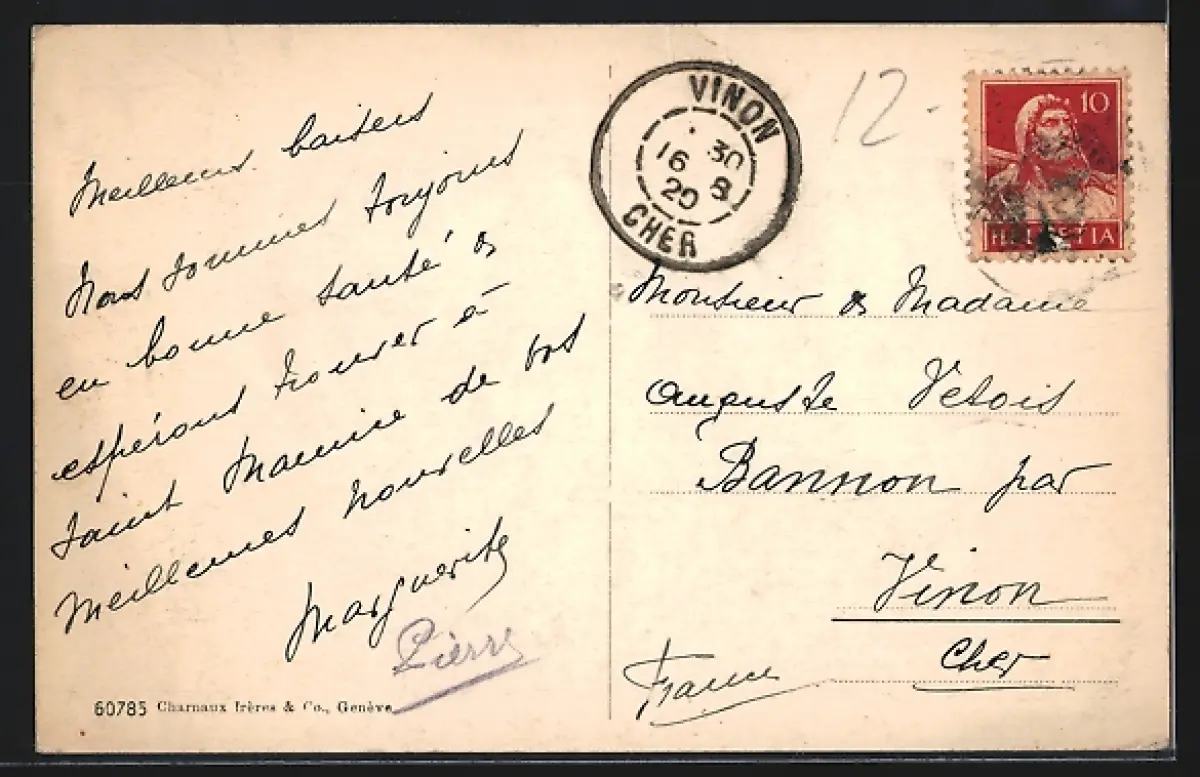 Meilleurs baisers
Nous sommes toujours
en bonne santé &
espérons trouver à
Saint Maurice de vos
meilleures nouvelles
Marguerite
Pierre
60785 Charnaux frères & Co., Genève
VINON
30
16 8
20
CHER
12-
10
HELVETIA
Monsieur & Madame
Auguste Vetois
Bannon par
Vinon
Cher
France